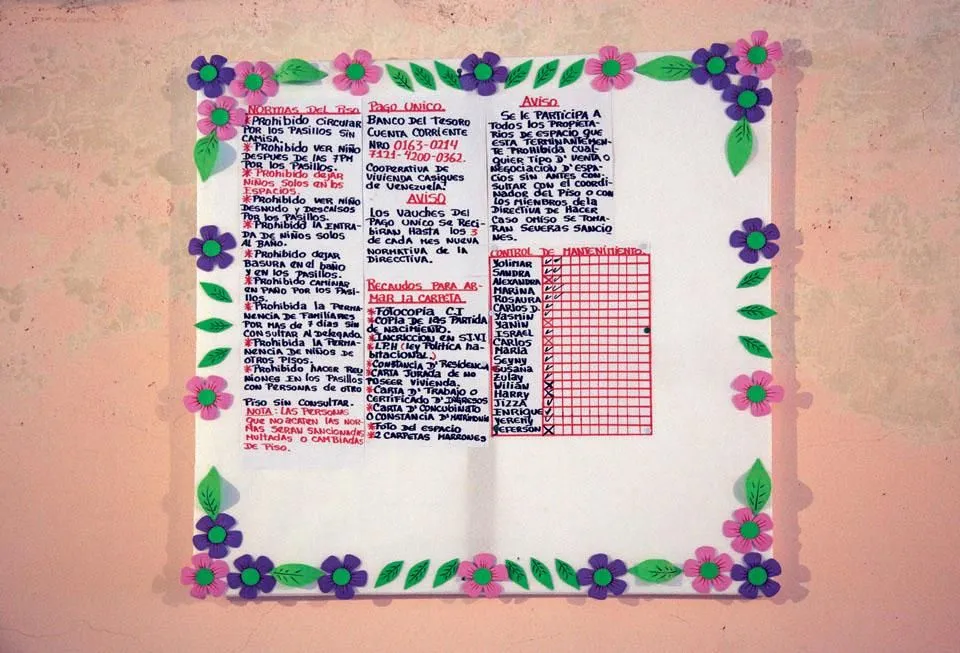 NORMAS DEL PISO
*PROHIBIDO CIRCULAR
POR LOS PASILLOS SIN
CAMISA.
*PROHIBIDO VER NIÑO
DESPUES DE LAS 7PM
POR LOS PASILLOS.
*PROHIBIDO DEJAR
NIÑOS SOLOS EN LOS
ESPACIOS.
*PROHIBIDO VER NIÑO
DESNUDO Y DESCALSOS
POR LOS PASILLOS.
*PROHIBIDO LA ENTRA-
DA DE NIÑOS SOLOS
AL BAÑO.
*PROHIBIDO DEJAR
BASURA EN EL BAÑO
Y EN LOS PASILLOS.
*PROHIBIDO CAMINAR
EN PAÑO POR LOS PASI-
LLOS.
*PROHIBIDA LA PERMA-
NENCIA DE FAMILIARES
POR MAS DE 7 DIAS SIN
CONSULTAR AL DELEGADO.
*PROHIBIDA LA PERMA-
NENCIA DE NIÑOS DE
OTROS PISOS.
*PROHIBIDO HACER REU
NIONES EN LOS PASILLOS
CON PERSONAS DE OTRO
PISO SIN CONSULTAR.
NOTA: LAS PERSONAS
QUE NO ACATEN LAS NOR-
MAS SERAN SANCIONADAS
MULTADAS O CAMBIADAS
DE PISO.
PAGO UNICO.
BANCO DEL TESORO
CUENTA CORRIENTE
NRO 0163-0214
7121-4200-0362.
COOPERATIVA DE
VIVIENDA CASIQUES
DE VENEZUELA.
AVISO
LOS VAUCHES DEL
PAGO UNICO SE RECI-
BIRAN HASTA LOS 3
DE CADA MES NUEVA
NORMATIVA DE LA
DIRECCTIVA.
RECAUDOS PARA AR-
MAR LA CARPETA
*FOTOCOPIA C.I
*COPIA DE LAS PARTIDA
DE NACIMIENTO.
*INCRICCION EN S.I.V.I
*L.P.H (LEY POLITICA HA-
BITACIONAL.)
*CONSTANCIA D' RESIDENCIA
*CARTA JURADA DE NO
POSEER VIVIENDA.
*CARTA D' TRABAJO O
CERTIFICADO D' INGRESOS
*CARTA D' CONCUBINATO
O CONSTANCIA D' MATRIMONIO
*FOTO DEL ESPACIO
*2 CARPETAS MARRONES
AVISO
SE LE PARTICIPA A
TODOS LOS PROPIETA-
RIOS DE ESPACIO QUE
ESTA TERMINANTEMEN-
TE PROHIBIDA CUAL-
QUIER TIPO D' VENTA O
NEGOCIACION D' ESPA-
CIOS SIN ANTES CON-
SULTAR CON EL COORDI-
NADOR DEL PISO O CON
LOS MIEMBROS DE LA
DIRECTIVA DE HACER
CASO OMISO SE TOMA-
RAN SEVERAS SANCIO
NES.
CONTROL DE MANTENIMIENTO.
YOLIMAR
SANDRA
ALEXANDRA
MARINA
ROSAURA
CARLOS D.
YASMIN
YANIN
ISRAEL
CARLOS
MARIA
SEYNY
SUSANA
ZULAY
WILIAN
HARRY
JIZZA
ENRIQUE
YEREMY
JEFERSON